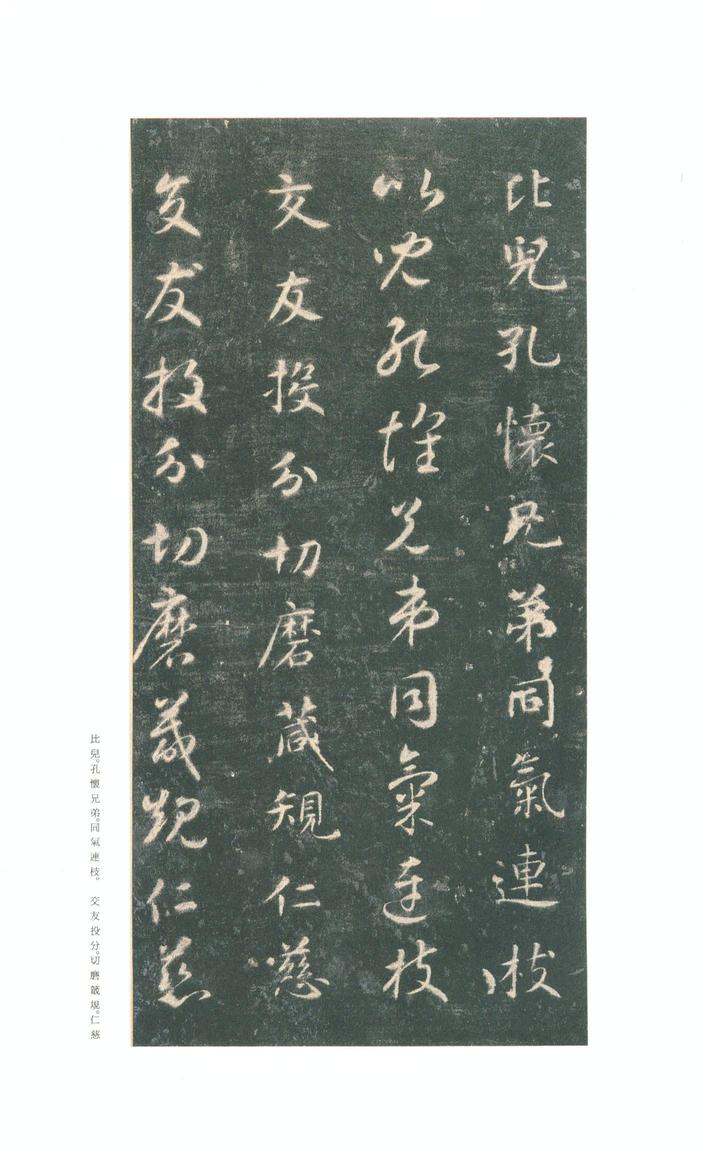 比兒孔懷兄弟同氣連枝
比兒孔懷兄弟同氣連枝
交友投分切磨箴規仁慈
交友投分切磨箴規仁慈
比兒。孔懷兄弟。同氣連枝。 交友投分。切磨箴規。仁慈